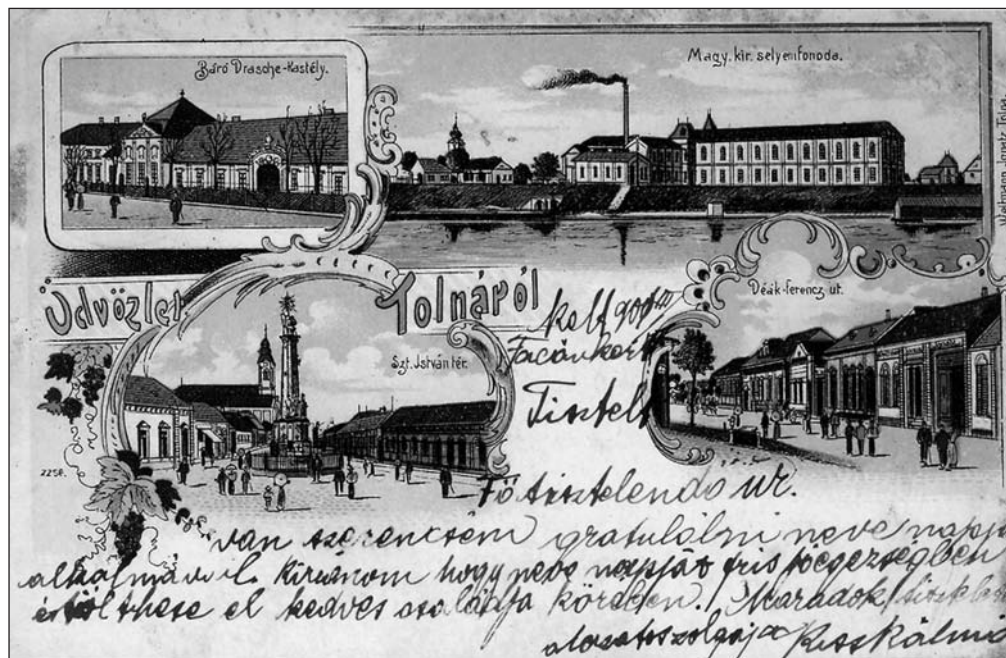 Báró Drasche-Kastély.
Magy. kir. selyemfonoda.
Üdvözlet Tolnáról
Szt. István tér.
Deák-ferencz ut.
2258.
Kelt 908
Tisztelt
Főtisztelendő úr.
van szerencsém gratulálni neve napja
alkalmával. Kivánom hogy neve napját friss
és tölthese el kedves családja körében. Maradok
alázatos szolgája Kiss Kálmán